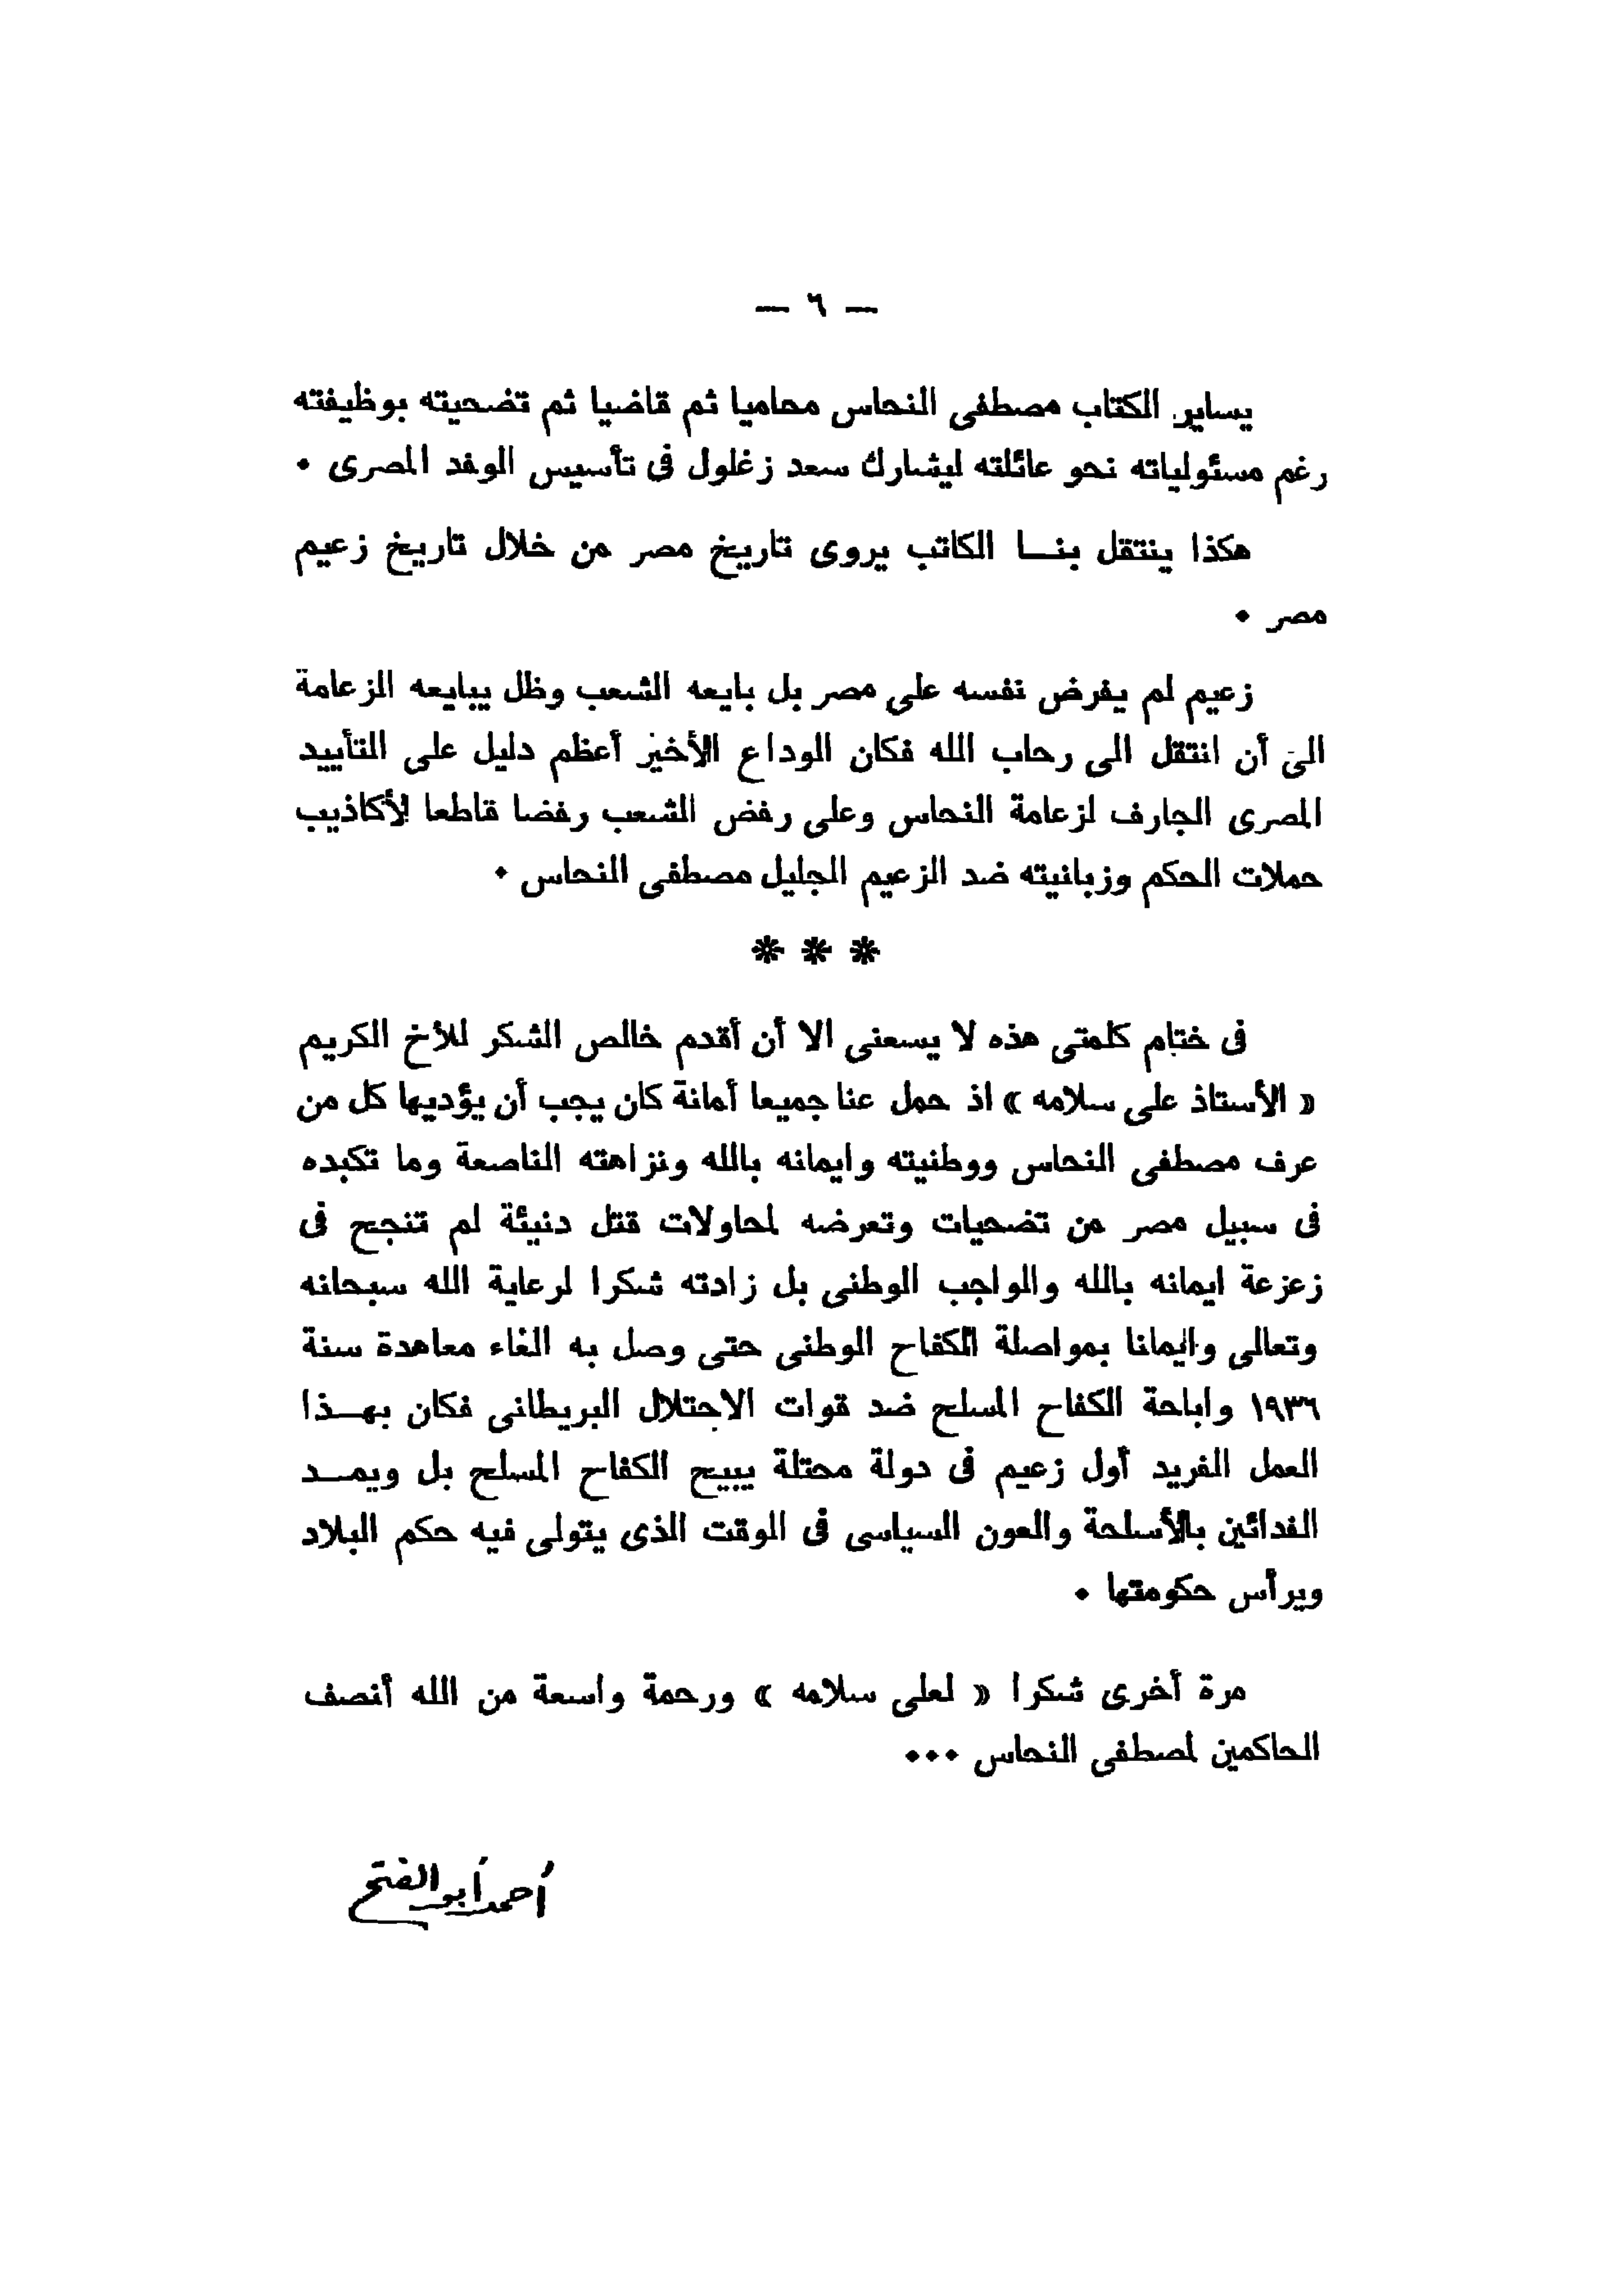 — ٦ —
يساير الكتاب مصطفى النحاس محاميا ثم قاضيا ثم تضحيته بوظيفته
رغم مسئولياته نحو عائلته ليشارك سعد زغلول فى تأسيس الوفد المصرى ٠
هكذا ينتقل بنـــا الكاتب يروى تاريخ مصر من خلال تاريخ زعيم
مصر ٠
زعيم لم يفرض نفسه على مصر بل بايعه الشعب وظل يبايعه الزعامة
الى أن انتقل الى رحاب الله فكان الوداع الأخير أعظم دليل على التأييد
المصرى الجارف لزعامة النحاس وعلى رفض الشعب رفضا قاطعا لأكاذيب
حملات الحكم وزبانيته ضد الزعيم الجليل مصطفى النحاس ٠
* * *
فى ختام كلمتى هذه لا يسعنى الا أن أقدم خالص الشكر للأخ الكريم
« الأستاذ على سلامه » اذ حمل عنا جميعا أمانة كان يجب أن يؤديها كل من
عرف مصطفى النحاس ووطنيته وايمانه بالله ونزاهته الناصعة وما تكبده
فى سبيل مصر من تضحيات وتعرضه لمحاولات قتل دنيئة لم تنجح فى
زعزعة ايمانه بالله والواجب الوطنى بل زادته شكرا لرعاية الله سبحانه
وتعالى وايمانا بمواصلة الكفاح الوطنى حتى وصل به الغاء معاهدة سنة
١٩٣٦ واباحة الكفاح المسلح ضد قوات الاحتلال البريطانى فكان بهـــذا
العمل الفريد أول زعيم فى دولة محتلة يبيح الكفاح المسلح بل ويمـــد
الفدائين بالأسلحة والعون السياسى فى الوقت الذى يتولى فيه حكم البلاد
ويرأس حكومتها ٠
مرة أخرى شكرا « لعلى سلامه » ورحمة واسعة من الله أنصف
الحاكمين لمصطفى النحاس ٠٠٠
أحمد أبو الفتح